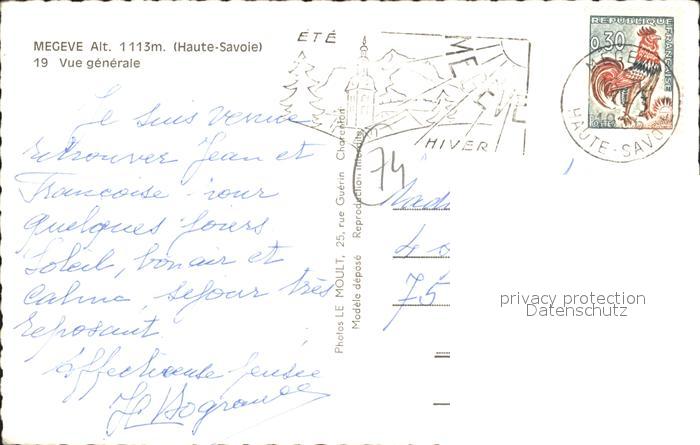 MEGEVE Alt. 1113m. (Haute-Savoie)
19 Vue générale
Je suis venue
retrouver Jean et
Françoise pour
quelques jours
Soleil, bon air et
calme, séjour très
reposant.
Affectueuse pensée
Photos LE MOULT, 25, rue Guérin Charenton
Modèle déposé Reproduction interdite
ÉTÉ
MEGEVE
HIVER
REPUBLIQUE
FRANÇAISE
0,30
POSTES
HAUTE-SAVOIE
74
75
privacy protection
Datenschutz